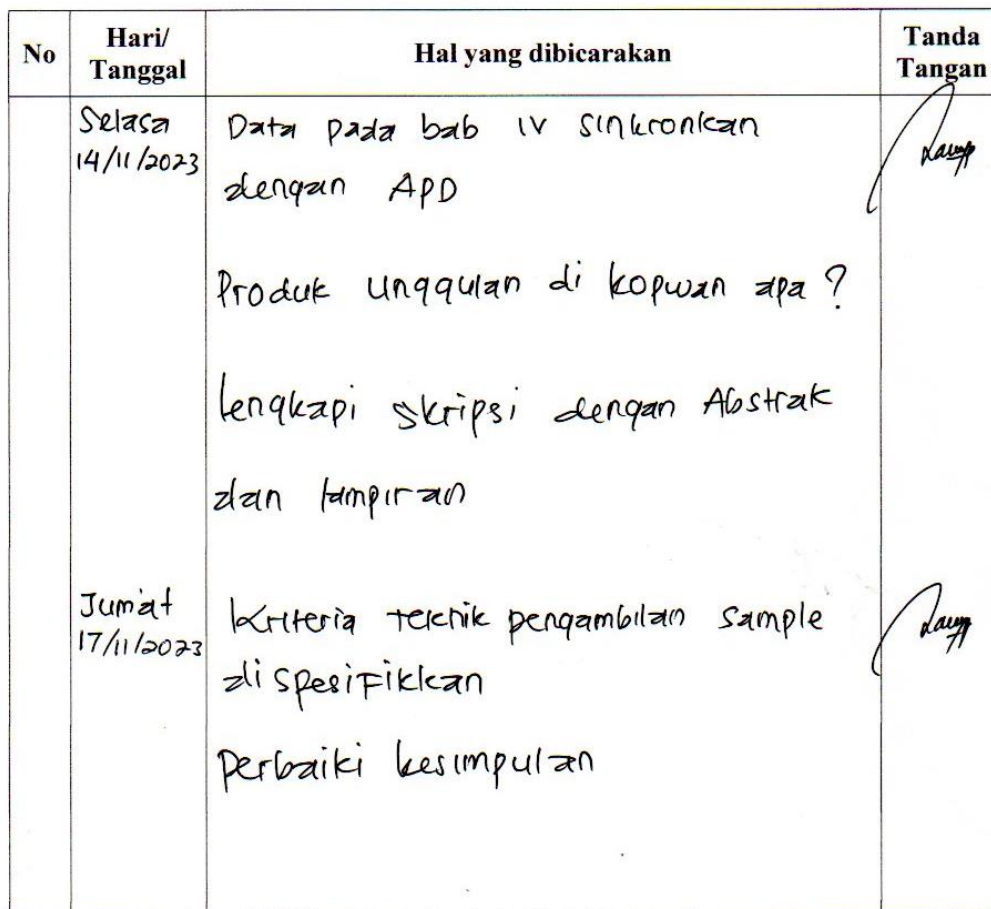 No
Hari/
Tanggal
Hal yang dibicarakan
Tanda
Tangan
Selasa
14/11/2023
Data pada bab IV sinkronkan
dengan APD
Produk unggulan di kopwan apa ?
Lengkapi skripsi dengan Abstrak
dan lampiran
Jum'at
17/11/2023
Kriteria teknik pengambilan sample
di spesifikkan
Perbaiki kesimpulan